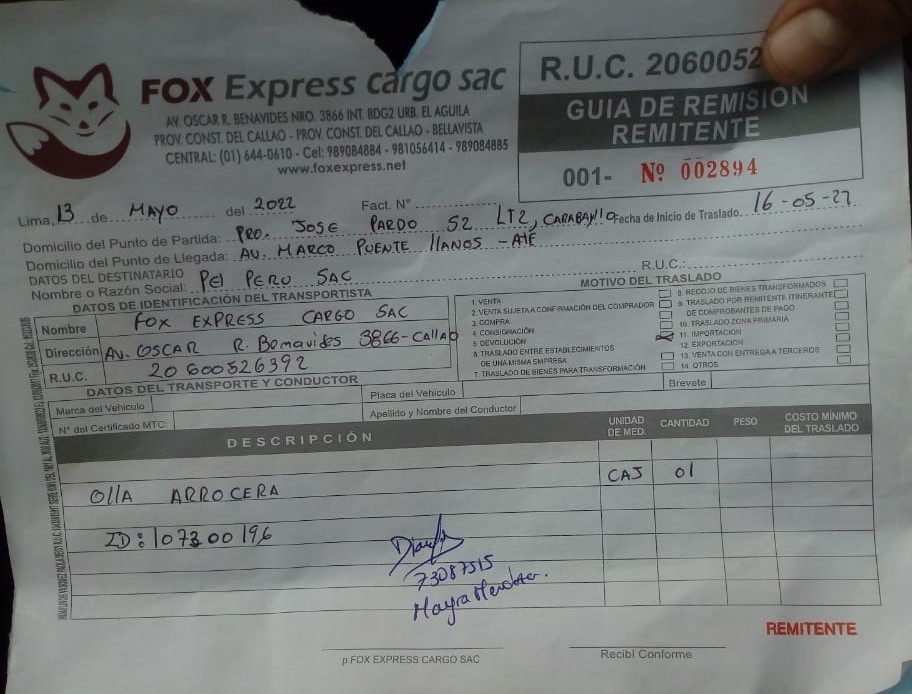 FOX Express cargo sac
AV. OSCAR R. BENAVIDES NRO. 3866 INT. BDG2 URB. EL AGUILA
PROV. CONST. DEL CALLAO - PROV. CONST. DEL CALLAO - BELLAVISTA
CENTRAL: (01) 644-0610 - Cel: 989084884 - 981056414 - 989084885
www.foxexpress.net
R.U.C. 2060052
GUIA DE REMISION
REMITENTE
001- Nº 002894
Lima, 13 de MAYO del 2022 Fact. N°
Domicilio del Punto de Partida: PRO. JOSE PARDO S2 LT2, CARABAYllO Fecha de Inicio de Traslado. 16-05-22
Domicilio del Punto de Llegada: AV. MARCO PUENTE llANOS - ATE
DATOS DEL DESTINATARIO
Nombre o Razón Social: PEI PERU SAC R.U.C.:
DATOS DE IDENTIFICACIÓN DEL TRANSPORTISTA
Nombre FOX EXPRESS CARGO SAC
Dirección AV. OSCAR R. Benavides 3866-Callao
R.U.C. 20600526392
MOTIVO DEL TRASLADO
1. VENTA
2. VENTA SUJETA A CONFIRMACIÓN DEL COMPRADOR
3. COMPRA
4. CONSIGNACIÓN
5. DEVOLUCIÓN
6. TRASLADO ENTRE ESTABLECIMIENTOS
DE UNA MISMA EMPRESA
7. TRASLADO DE BIENES PARA TRANSFORMACIÓN
8. RECOJO DE BIENES TRANSFORMADOS
9. TRASLADO POR REMITENTE ITINERANTE
DE COMPROBANTES DE PAGO
10. TRASLADO ZONA PRIMARIA
11. IMPORTACIÓN
12. EXPORTACIÓN
13. VENTA CON ENTREGA A TERCEROS
14. OTROS
DATOS DEL TRANSPORTE Y CONDUCTOR
Marca del Vehículo
Placa del Vehículo
Brevete
N° del Certificado MTC:
Apellido y Nombre del Conductor
DESCRIPCIÓN UNIDAD DE MED. CANTIDAD PESO COSTO MÍNIMO DEL TRASLADO
OllA ARROCERA CAJ 01
ID: 107300196
73087515
Mayra
REMITENTE
p.FOX EXPRESS CARGO SAC
Recibí Conforme